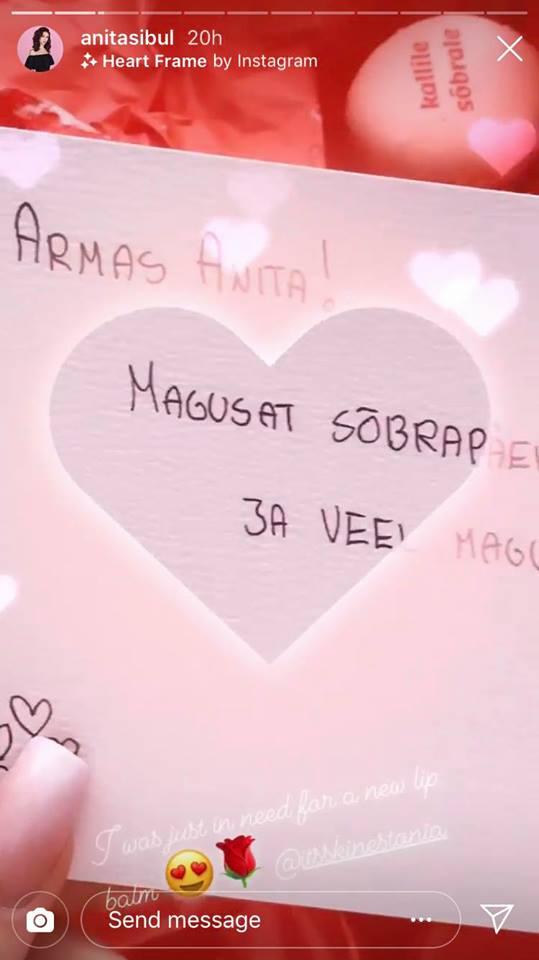 anitasibul 20h
Heart Frame by Instagram
kallile
sõbrale
ARMAS ANITA!
MAGUSAT SÕBRAPÄEV
JA VEEL MAGU
I was just in need for a new lip
balm 😍🌹 @itsskinestonia
Send message